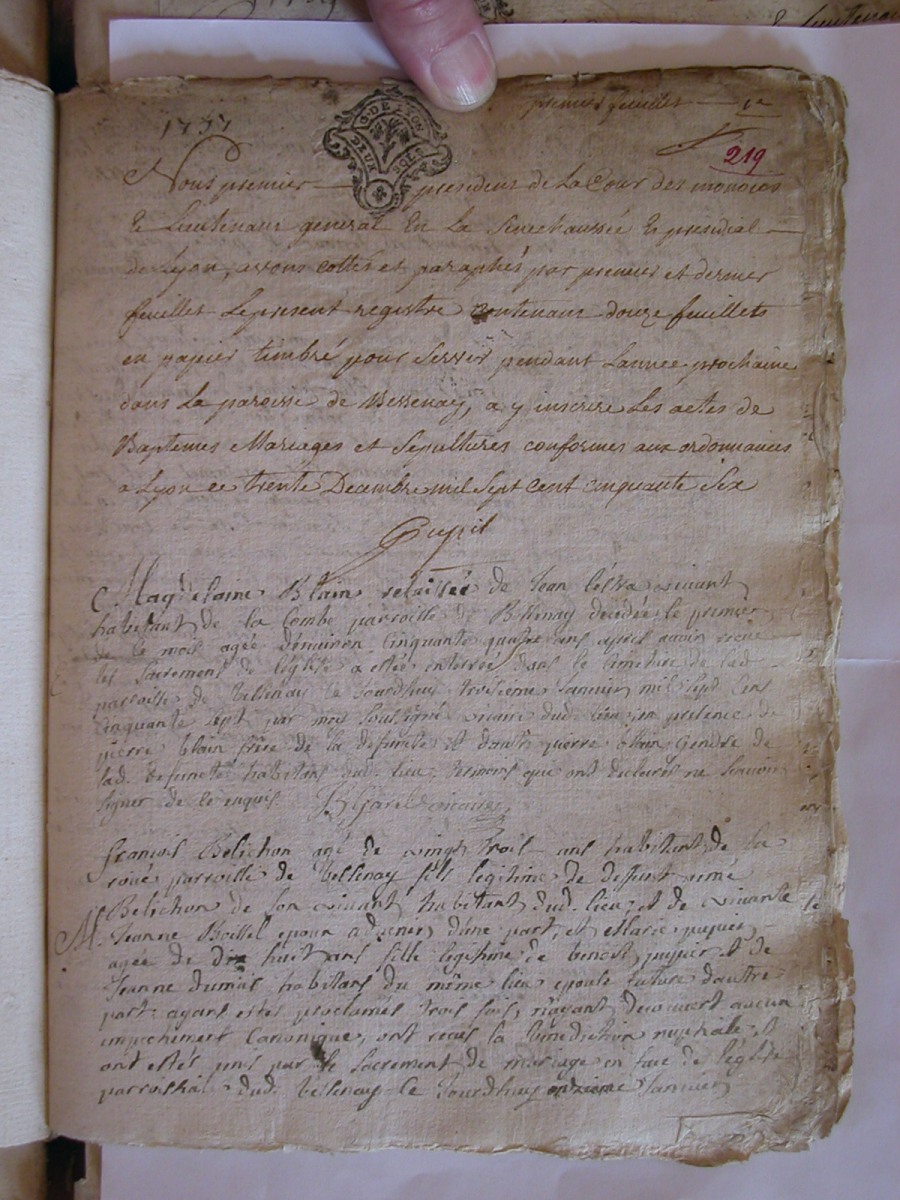 premier feuillet — 1er
1757
G. DE LYON
DEUX SOLS
219
Nous premier president de La Cour des monoies
& Lieutenant general En La Senechaussée & presidial
de Lyon, avons cottés et paraphés par premier et dernier
feuillet Le present registre contenant douze feuillets
en papier timbré pour Servir pendant Lannée prochaine
dans La paroisse de Bessenay, a y inscrire Les actes de
Baptemes Mariages et Sepultures conformes aux ordonnances
a Lyon ce trente Decembre mil Sept cent cinquante Six
Pupil
Magdelaine Blain relaissée de Jean vivant
habitant de la Combe parroisse de Bessenay décédée le premier
de ce mois agée denviron Cinquante quatre ans après avoir recu
les Sacrement de léglise a estée enterrée dans le Cimetiere de lad
parroisse de Bessenay le Jourdhuy troisième Janvier mil Sept Cens
Cinquante Sept par moy Soussigné vicaire dud. lieu en présence de
pierre blain frère de la défuncte et dautre pierre blain Gendre de
lad. défuncte habitans dud. lieu témoins qui ont déclarés ne Scavoir
Signer de ce enquis vicaire
francois Belichon agé de vingt trois ans habitant de la
parroisse de Bessenay fils légitime de deffunt
Belichon de Son vivant habitant dud. lieu et de vivante
M. Jeanne epoux a venir d'une part, et Marie pupier
agée de dix huit ans fille légitime de benoit pupier et de
Jeanne dumas habitans du même lieu epouse future d'autre
part ayant estés proclamés trois fois, n'ayant decouvert aucun
empechement Canonique, ont recus la bénédiction nuptiale et
ont estés unis par le Sacrement de mariage en face de léglise
parroissiale dud. bessenay Ce Jourdhuy onzieme Janvier